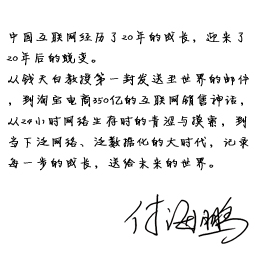 中国互联网经历了20年的成长，迎来了
20年后的蜕变。
从钱天白教授第一封发送至世界的邮件
，到淘宝电商350亿的互联网销售神话，
从24小时网络生存时的青涩与摸索，到
当下泛网络、泛数据化的大时代，记录
每一步的成长，送给未来的世界。
付海鹏